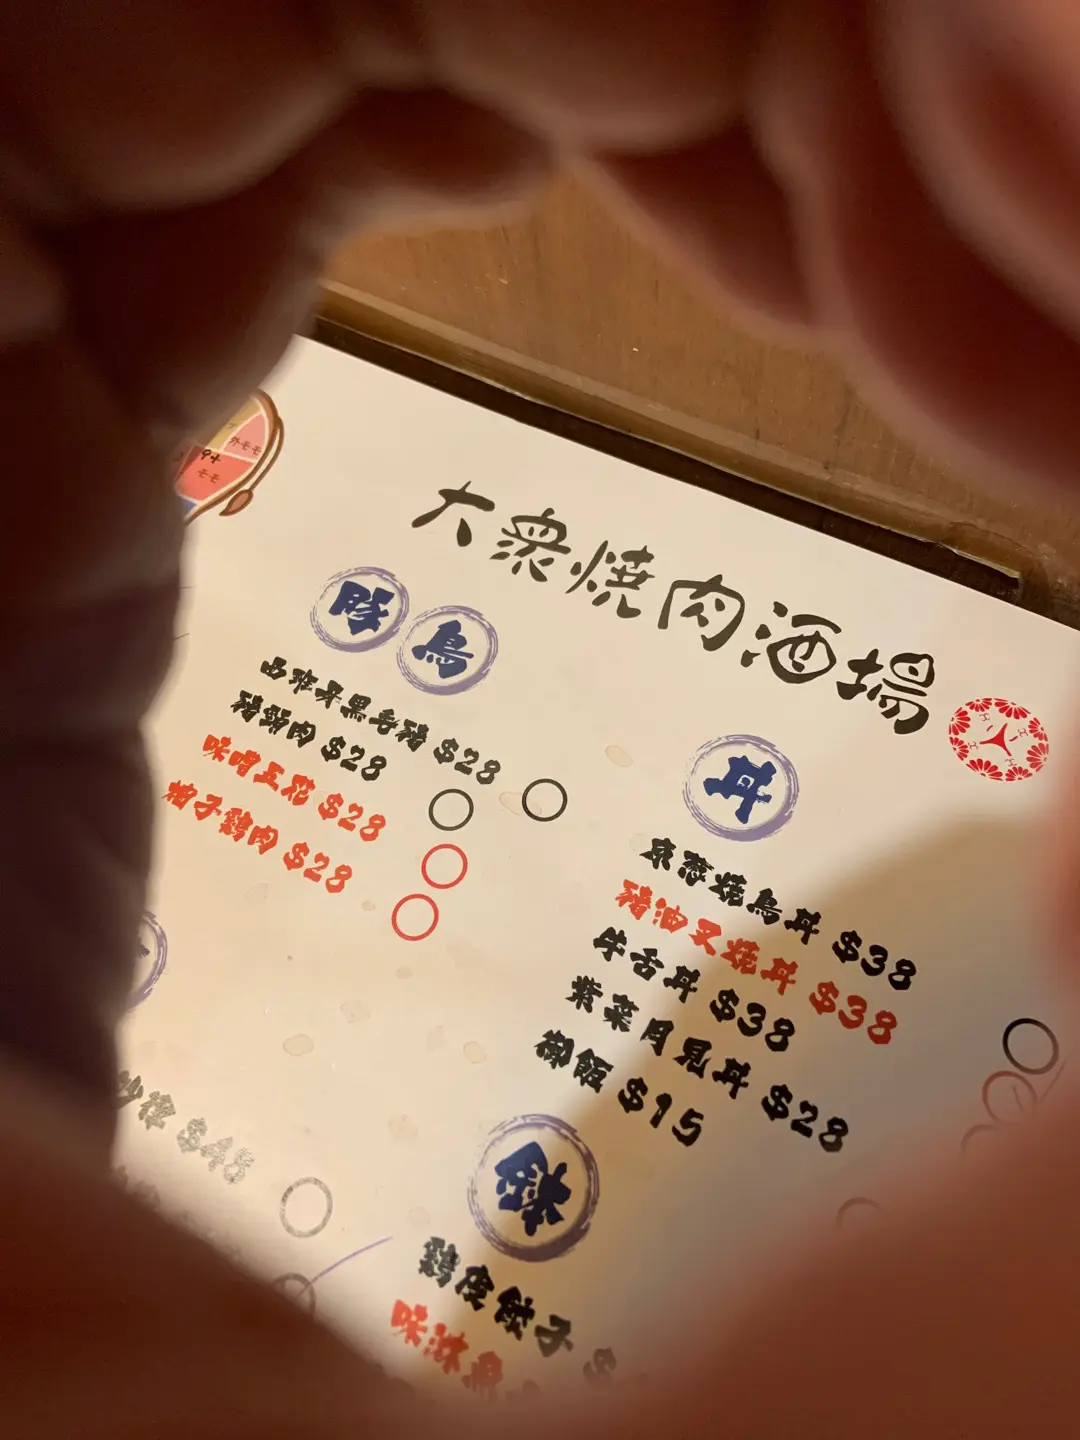 外モモ
モモ
大衆焼肉酒場
豚 鳥
西班牙黒毛豬 $28
豬頭肉 $28
味噌五花 $28
柚子鶏肉 $28
丼
京葱燒鳥丼 $38
豬油叉燒丼 $38
牛舌丼 $38
紫菜月見丼 $28
御飯 $15
$48
鶏皮餃子 $
味淋魚